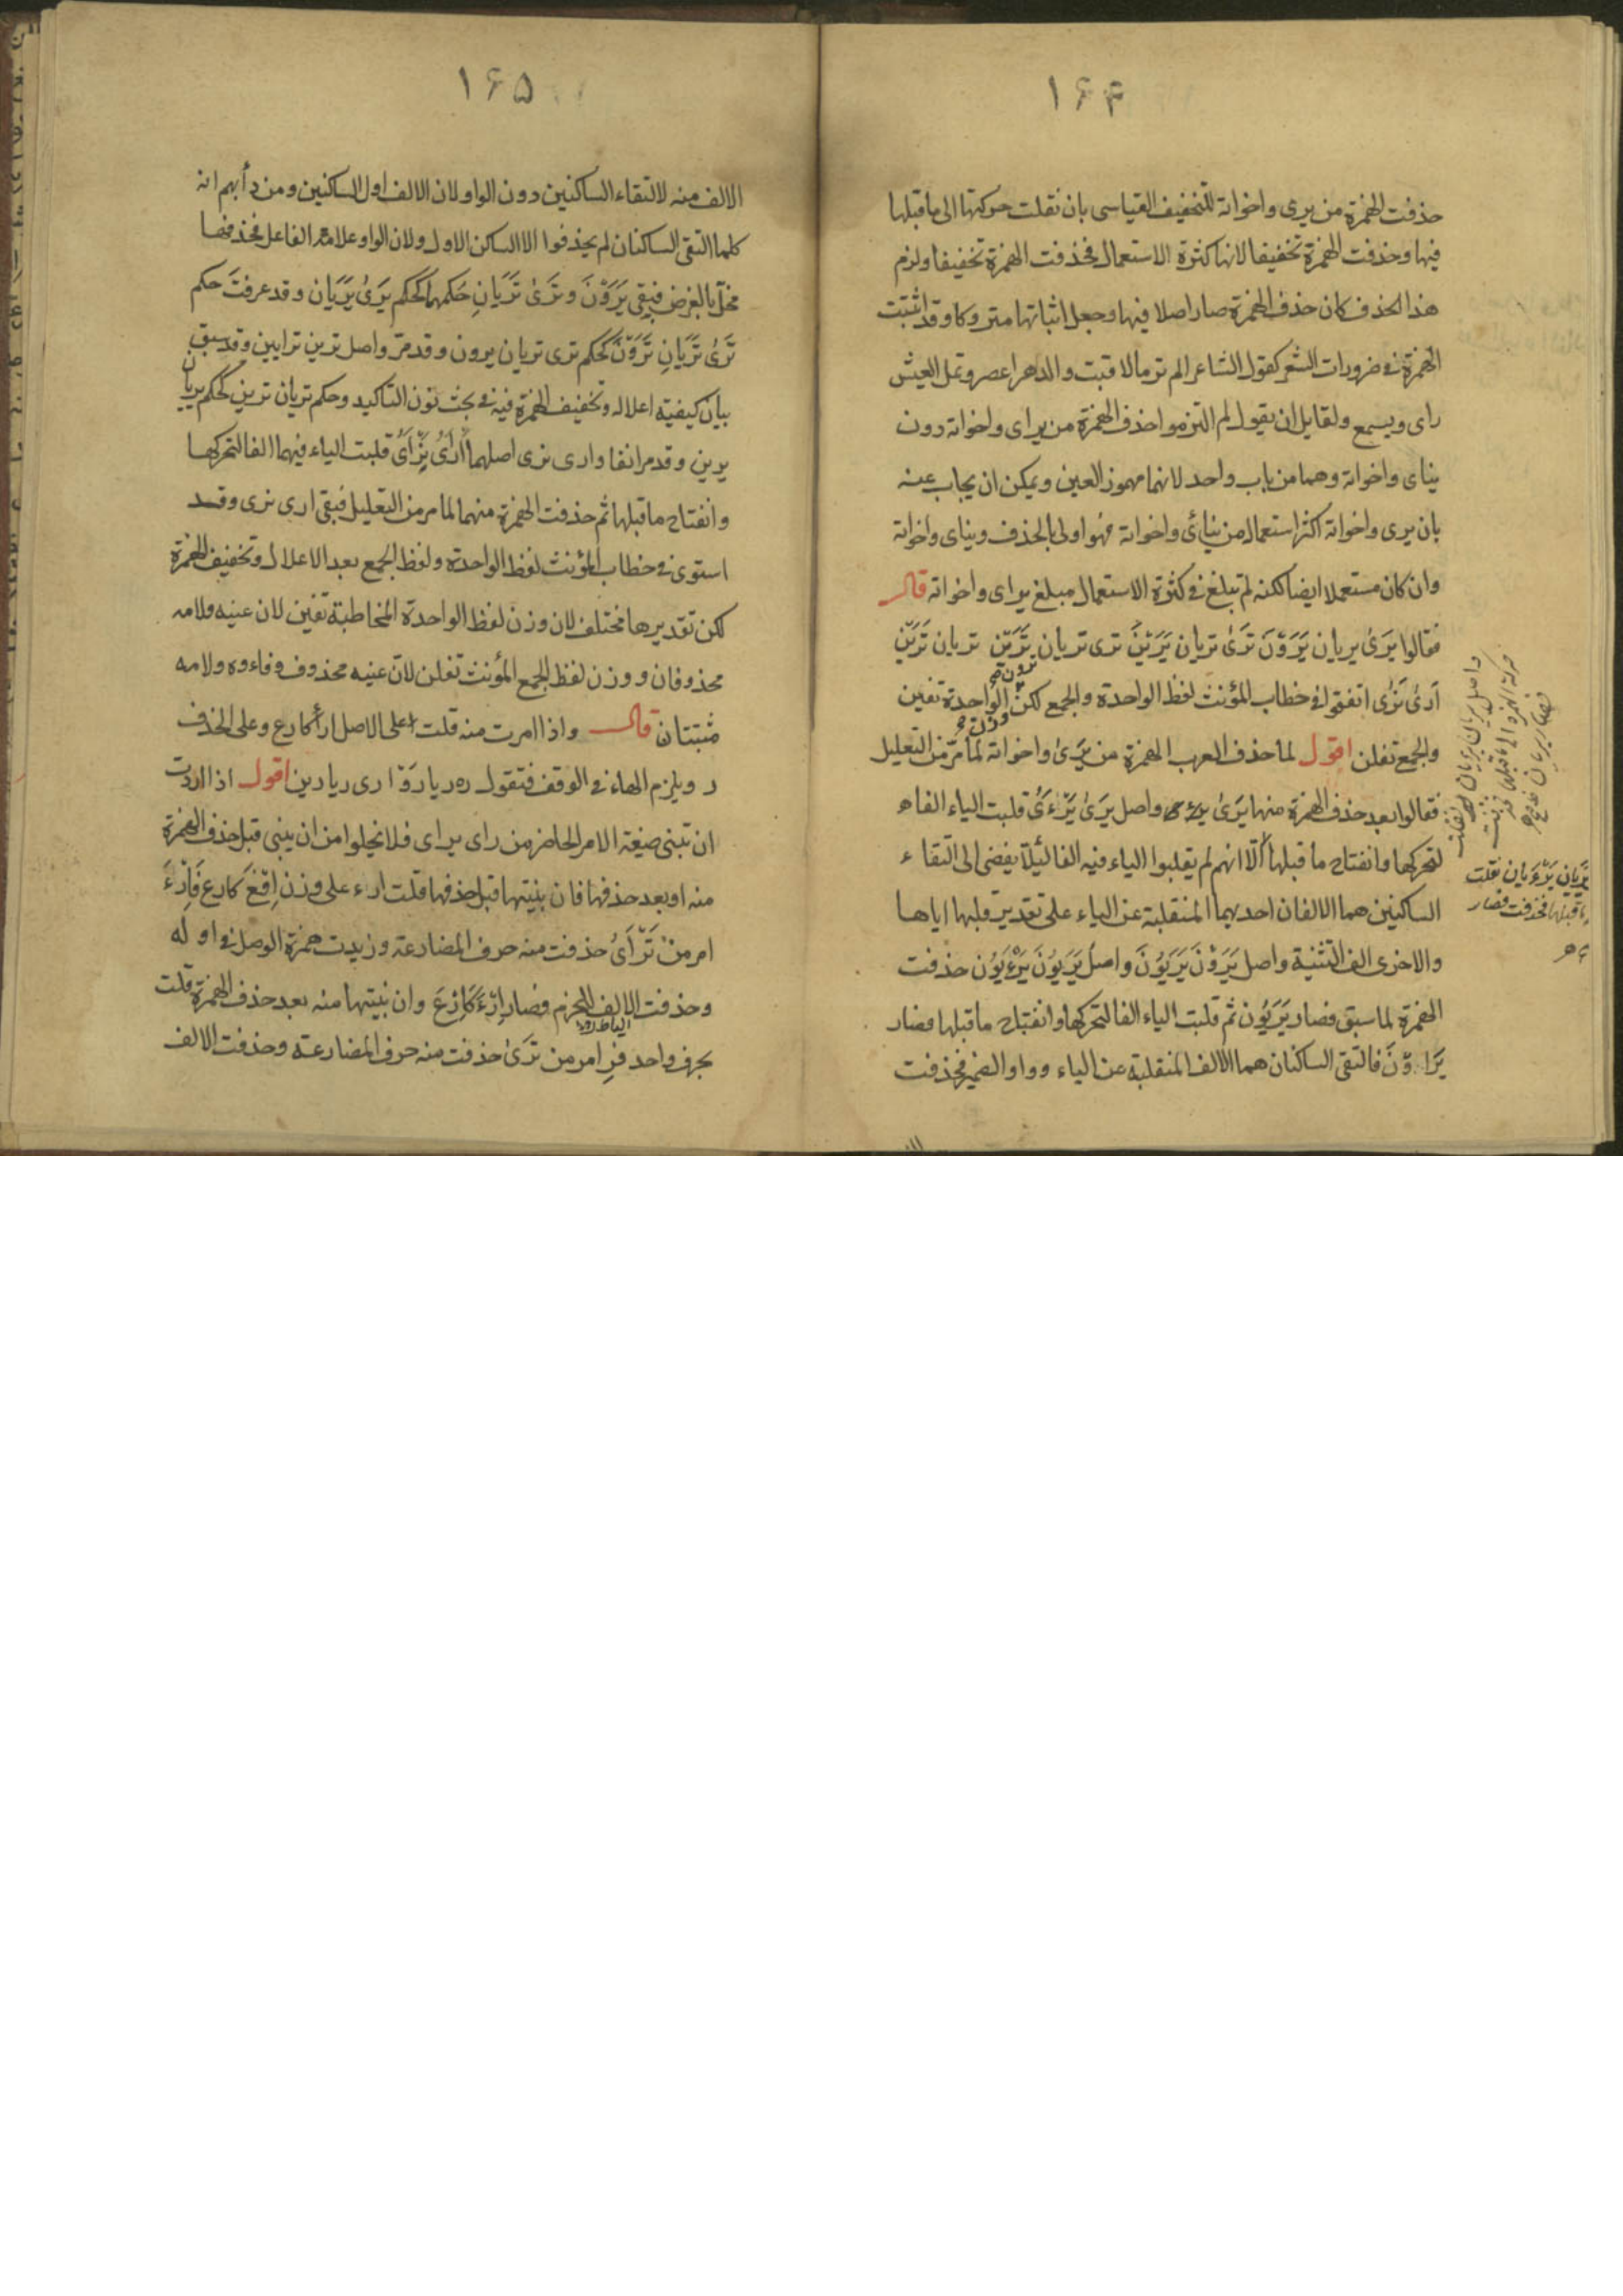 ۱۶۴
حذفت الهمزة من يرى واخواته للتخفيف القياسى بان نقلت حركتها الى ما قبلها
فيها وحذفت الهمزة تخفيفا لانها كثرة الاستعمال فحذفت الهمزة تخفيفا ولزم
هذا الحذف كان حذف الهمزة صار اصلا فيها وجعل اثباتها متروكا وقد اثبتت
الهمزة فى ضرورات الشعر كقول الشاعر الم تر ما لاقيت والدهر اعصر وتمل العيش
راى ويسمع ولقايل ان يقول لم التزموا حذف الهمزة من يراى واخواته دون
يناى واخواته وهما من باب واحد لانهما مهموز العين ويمكن ان يجاب عنه
بان يرى واخواته اكثر استعمالا من ينأى واخواته فهو اولى بالحذف ويناى واخواته
وان كان مستعملا ايضا لكنه لم تبلغ فى كثرة الاستعمال مبلغ يراى واخواته قال
فقالوا يَرَىٰ يريان يَرَوْنَ تَرَىٰ تريان يَرَيْنَ ترى تريان تَرَوْنَ تَرَيْنَ تريان تَرَيْنَ
اَرَىٰ نَرَىٰ اتفقوا فى خطاب المؤنث لفظ الواحدة والجمع لكن وزن الواحدة تفين
والجمع تفلن اقول لما حذف العرب الهمزة من يَرَىٰ واخواته لما مرّ من التعليل
فقالوا بعد حذف الهمزة منها يَرَىٰ واصل يَرَىٰ يَرْءَىُ قلبت الياء الفا
لتحركها وانفتاح ما قبلها الّا انهم لم يقلبوا الياء فيه الفا لئيلّا يفضى الى التقاء
الساكنين هما الالفان احديهما المنقلبة عن الياء على تقدير قلبها اياها
والاخرى الف التثنية واصل يَرَوْنَ يَرَيُوْنَ واصل يَرَيُوْنَ يَرْءَيُوْن حذفت
الهمزة لما سبق فصار يَرَيُوْن ثم قلبت الياء الفا لتحركها وانفتاح ما قبلها فصار
يَرَا وْنَ فالتقى الساكنان هما الالف المنقلبة عن الياء وواو الضمير فحذفت
واصل يريان
حركة الهمزة الى ما قبلها
فصار يريان
يَرَيان يَرْءَيان نقلت
ما قبلها فحذفت فصار
۱۶۵
الالف منه لالتقاء الساكنين دون الواو لان الالف اول الساكنين ومن دأبهم انه
كلما التقى الساكنان لم يحذفوا الا الساكن الاول ولان الواو علامة الفاعل فحذفها
مخلّ بالغرض فبقى يَرَوْنَ وتَرَىٰ تَرَيَانِ حكمهما كحكم يَرَىٰ يَرَيَان وقد عرفت حكم
تَرَىٰ تَرَيَانِ تَرَوْنَ كحكم ترى تريان يرون وقد مرّ واصل ترين ترايين وقد سبق
بيان كيفية اعلاله وتخفيف الهمزة فيه فى بحث نون التاكيد وحكم تريان ترين كحكم يريان
يرين وقد مر انفا وارى نرى اصلهما أَرْأَىُ نَرْأَىُ قلبت الياء فيهما الفا لتحركها
وانفتاح ما قبلها ثم حذفت الهمزة منهما لما مر من التعليل فبقى ارى نرى وقد
استوى فى خطاب المؤنث لفظ الواحدة ولفظ الجمع بعد الاعلال وتخفيف الهمزة
لكن تقديرها مختلف لان وزن لفظ الواحدة المخاطبة تفين لان عينه ولامه
محذوفان ووزن لفظ الجمع المؤنث تفلن لانّ عينه محذوف وفاءوه ولامه
مثبتتان قال واذا امرت منه قلت على الاصل ارأ كارع وعلى الحذف
ر ويلزم الهاء فى الوقف فتقول ره ريا رَوْا رى ريا رين اقول اذا اردت
ان تبنى صيغة الامر الحاضر من راى يراى فلا يخلوا من ان يبنى قبل حذف الهمزة
منه او بعد حذفها فان بنيتها قبل حذفها قلت ارء على وزن اِفْعَ كارع فَاِرْءَ
امر من تَرْأَىُ حذفت منه حرف المضارعة وزيدت همزة الوصل فى اوله
وحذفت الالف للجزم فصار اِرْءَ كَاِرْعَ وان بنيتها منه بعد حذف الهمزة قلت
بحرف واحد فرِ امر من تَرَىٰ حذفت منه حرف المضارعة وحذفت الالف